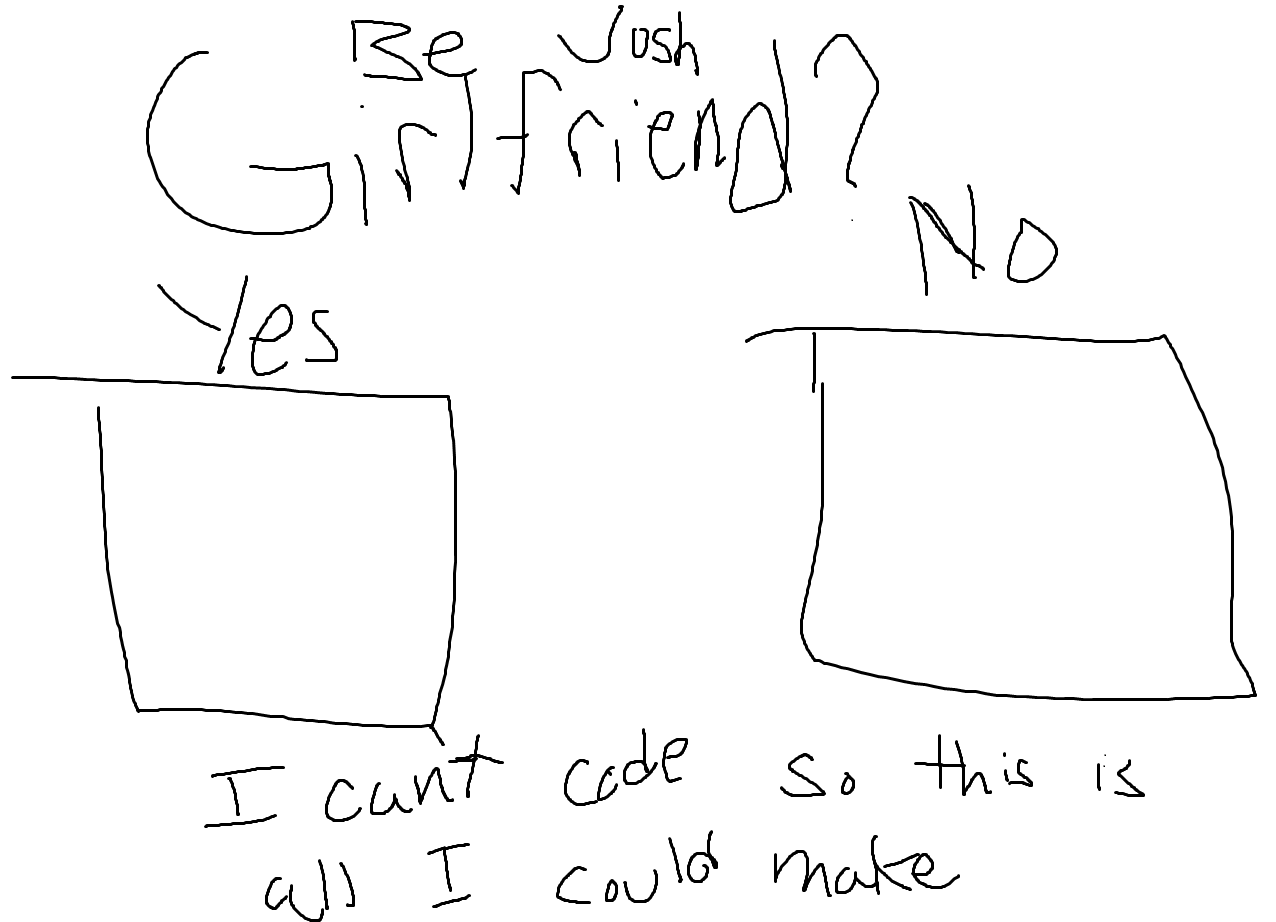 Be Josh
Girlfriend?
No
Yes
I cant code so this is
all I could make